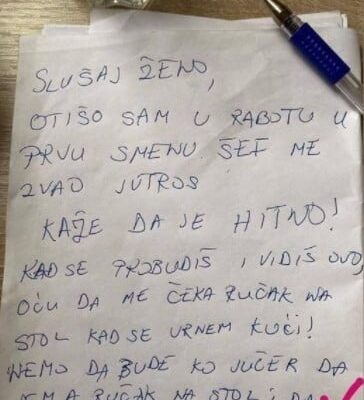 SLUŠAJ ŽENO,
OTIŠO SAM U RABOTU U
PRVU SMENU. ŠEF ME
ZVAO JUTROS
KAŽE DA JE HITNO!
KAD SE PROBUDIŠ I VIDIŠ OVO
OĆU DA ME ČEKA RUČAK NA
STOL KAD SE VRNEM KUĆI!
NEMO DA BUDE KO JUČER DA
NEMA RUČAK NA STOL I DA